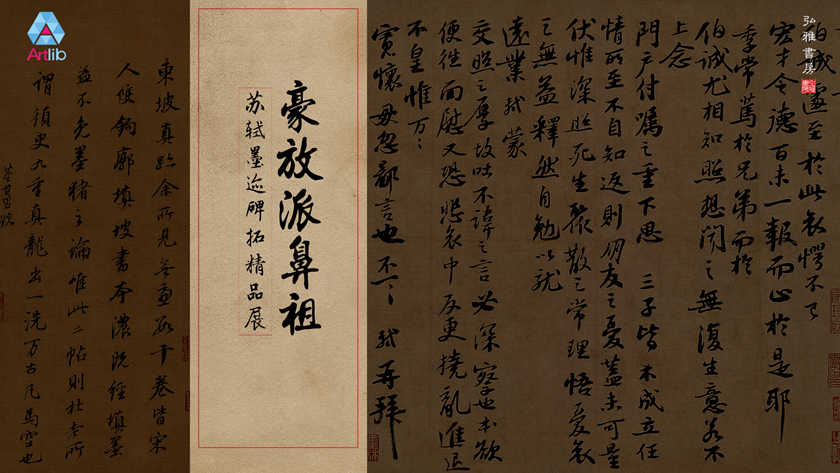 Artlib
弘雅書房
伯誠遽至於此哀愕不已
宏才令德百未一報而止於是耶
季常篤於兄弟而於
伯誠尤相知照想聞之無復生意若不
上念
門戶付囑之重下思三子皆未成立任
情所至不自知返則朋友之憂蓋未可量
伏惟深照死生聚散之常理悟憂哀
之無益釋然自勉以就
遠業軾蒙
交照之厚故吐不諱之言必深察也本欲
便往面慰又恐悲哀中反更撓亂進退
不皇惟万万
寬懷毋忽鄙言也不一一軾再拜
豪放派鼻祖
苏轼墨迹碑拓精品展
東坡真跡余所見無慮數十卷皆宋
人雙鉤廓填坡書本濃既經填墨
益不免墨豬之論唯此二帖則杜老所
謂須臾九重真龍出一洗万古凡馬空也
董其昌跋